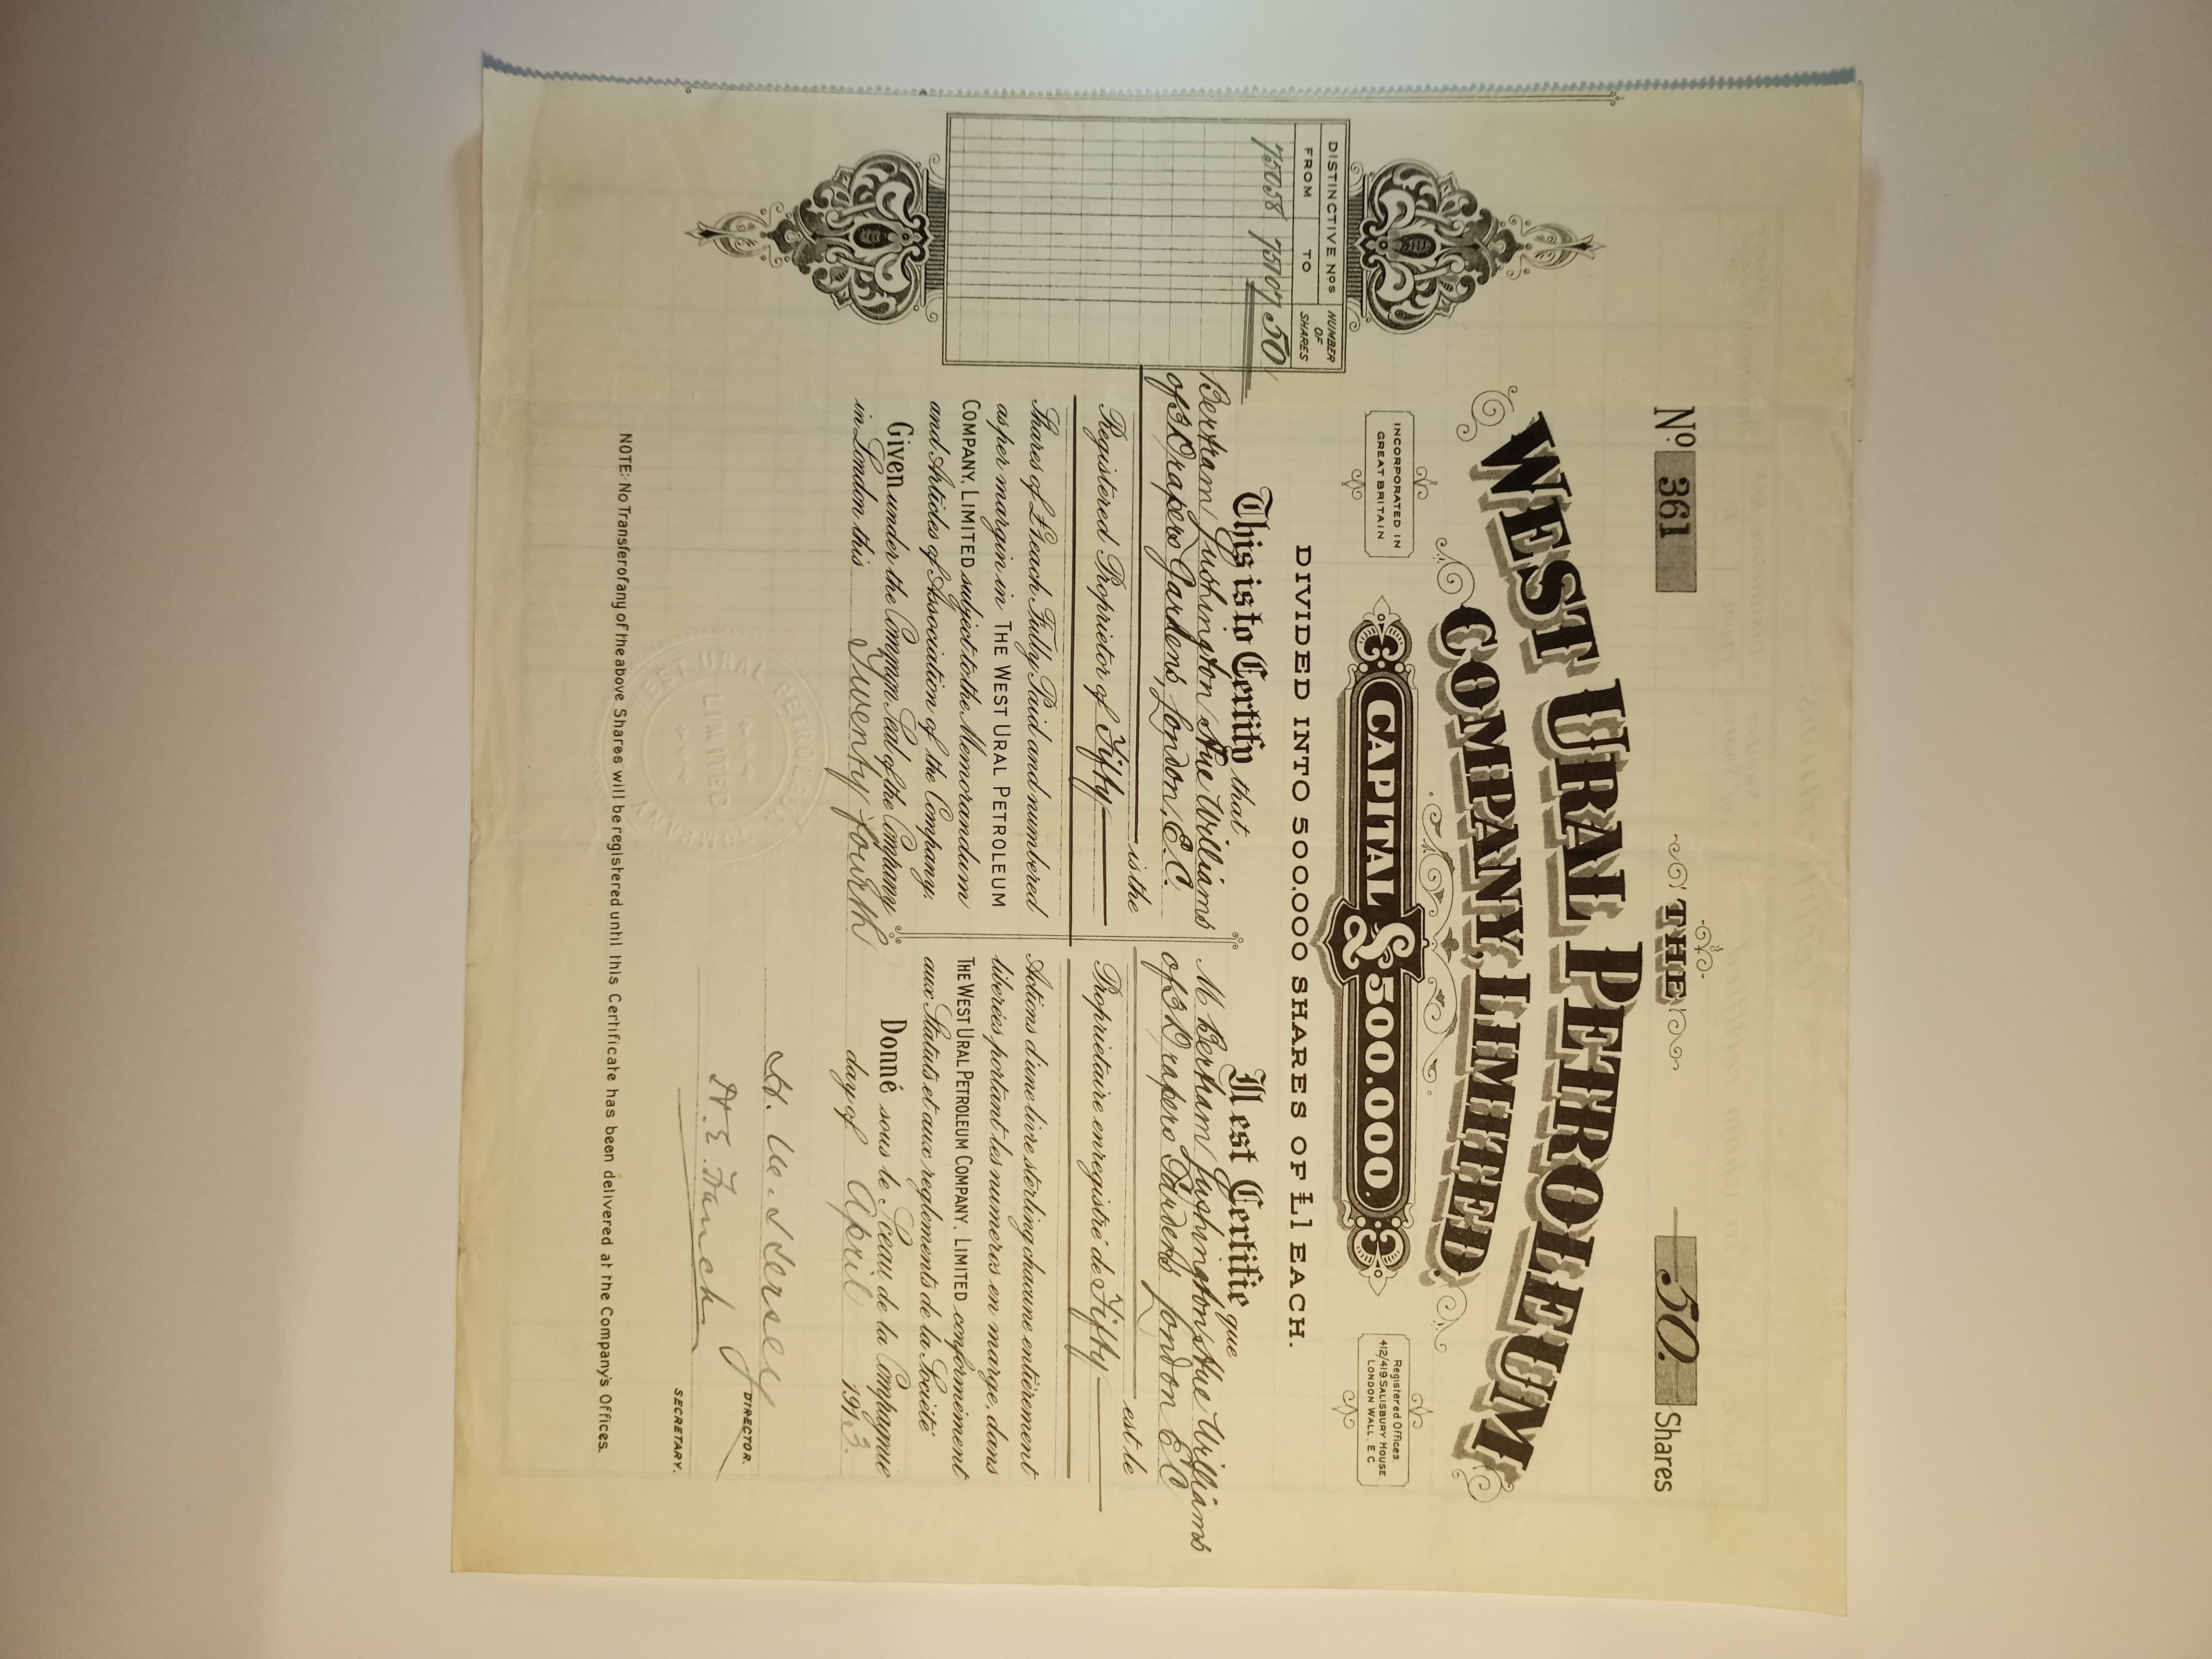 No. 361
THE
50. Shares
WEST URAL PETROLEUM
COMPANY, LIMITED.
INCORPORATED IN
GREAT BRITAIN
CAPITAL £500.000.
Registered Offices.
412/419 SALISBURY HOUSE
LONDON WALL, E C
DIVIDED INTO 500.000 SHARES OF £1 EACH.
DISTINCTIVE Nos
NUMBER OF SHARES
FROM TO
75058 75107 50
This is to Certify that
Bertram Lushington Stue Williams
of 3 Drapers Gardens, London, E.C.
is the
Registered Proprietor of Fifty
Shares of £1 each Fully Paid and numbered
as per margin in THE WEST URAL PETROLEUM
COMPANY, LIMITED subject to the Memorandum
and Articles of Association of the Company.
Given under the Common Seal of the Company
in London this Twenty fourth
Il est Certifie que
M Bertram Lushington Stue Williams
of 3 Drapers Gardens London E C
est le
Proprietaire enregistré de Fifty
Actions d'une livre sterling chacune entièrement
libérées portant les numeros en marge, dans
THE WEST URAL PETROLEUM COMPANY. LIMITED conformément
aux Statuts et aux reglements de la Société
Donné sous le Sceau de la Compagnie
day of April 1913.
DIRECTOR.
SECRETARY.
WEST URAL PETROLEUM COMPANY
LIMITED
NOTE:- No Transfer of any of the above Shares will be registered until this Certificate has been delivered at the Company's Offices.